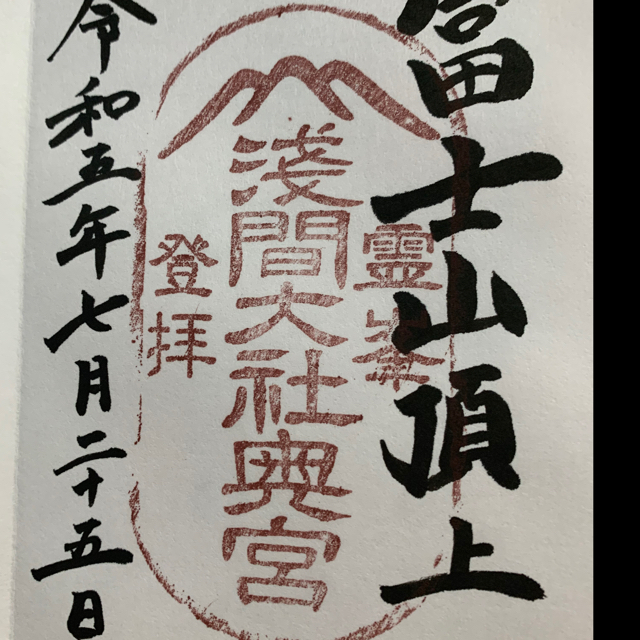 富士山頂上
霊峯
淺間大社奥宮
登拝
令和五年七月二十五日